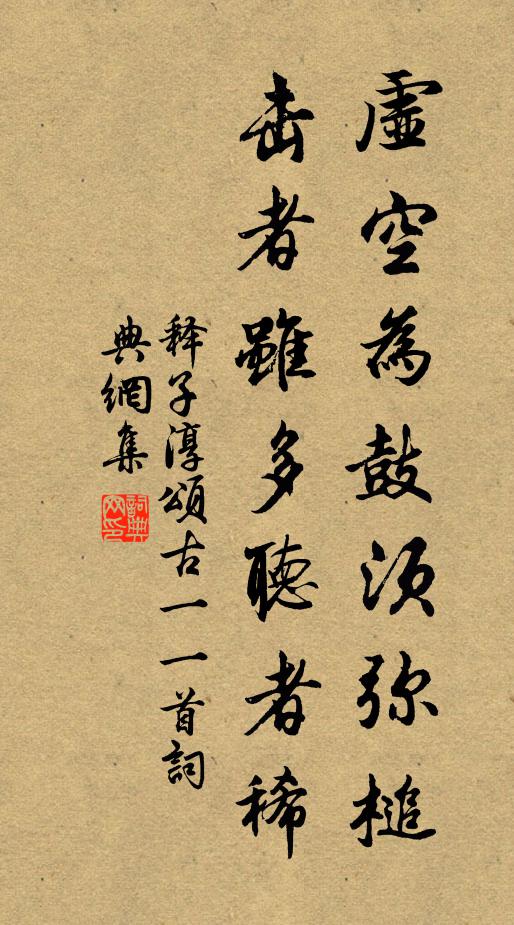 虛空為鼓須弥槌
击者雖多聽者稀
释子淳頌古一一首詞
典網集
詞典
网印